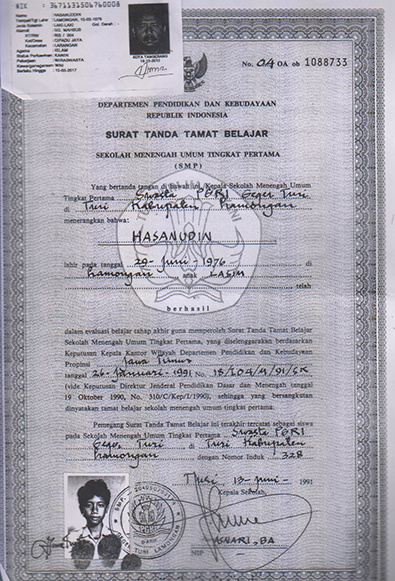 NIK : 3671131506760008
Nama : HASANUDIN
LAMONGAN, 15-06-1976
Jenis Kelamin : LAKI-LAKI
Gol. Darah : -
Alamat
Kel/Desa : CIPADU JAYA
Kecamatan : LARANGAN
Agama : ISLAM
Status Perkawinan : KAWIN
Pekerjaan : WIRASWASTA
Kewarganegaraan : WNI
Berlaku Hingga
KOTA TANGERANG
No. 04 OA ob 1088733
DEPARTEMEN PENDIDIKAN DAN KEBUDAYAAN
REPUBLIK INDONESIA
SURAT TANDA TAMAT BELAJAR
SEKOLAH MENENGAH UMUM TINGKAT PERTAMA
(SMP)
Yang bertanda tangan di bawah ini, Kepala Sekolah Menengah Umum
Tingkat Pertama Swasta PGRI Geger Turi
di Turi Kabupaten Lamongan
menerangkan bahwa:
HASANUDIN
lahir pada tanggal 29-Juni-1976 di
Lamongan anak LASIM
telah
berhasil
dalam evaluasi belajar tahap akhir guna memperoleh Surat Tanda Tamat Belajar
Sekolah Menengah Umum Tingkat Pertama, yang diselenggarakan berdasarkan
Keputusan Kepala Kantor Wilayah Departemen Pendidikan dan Kebudayaan
Propinsi Jawa Timur
tanggal 26-Januari-1991 No. 18/I04/M/91/SK
(vide Keputusan Direktur Jenderal Pendidikan Dasar dan Menengah tanggal
19 Oktober 1990, No. 310/C/Kep/I/1990), sehingga yang bersangkutan
dinyatakan tamat belajar sekolah menengah umum tingkat pertama.
Pemegang Surat Tanda Tamat Belajar ini terakhir tercatat sebagai siswa
pada Sekolah Menengah Umum Tingkat Pertama Swasta PGRI
Geger Turi di Turi Kabupaten
Lamongan dengan Nomor Induk 328
Turi, 13-Juni-1991
Kepala Sekolah,
ASNARI, BA
NIP